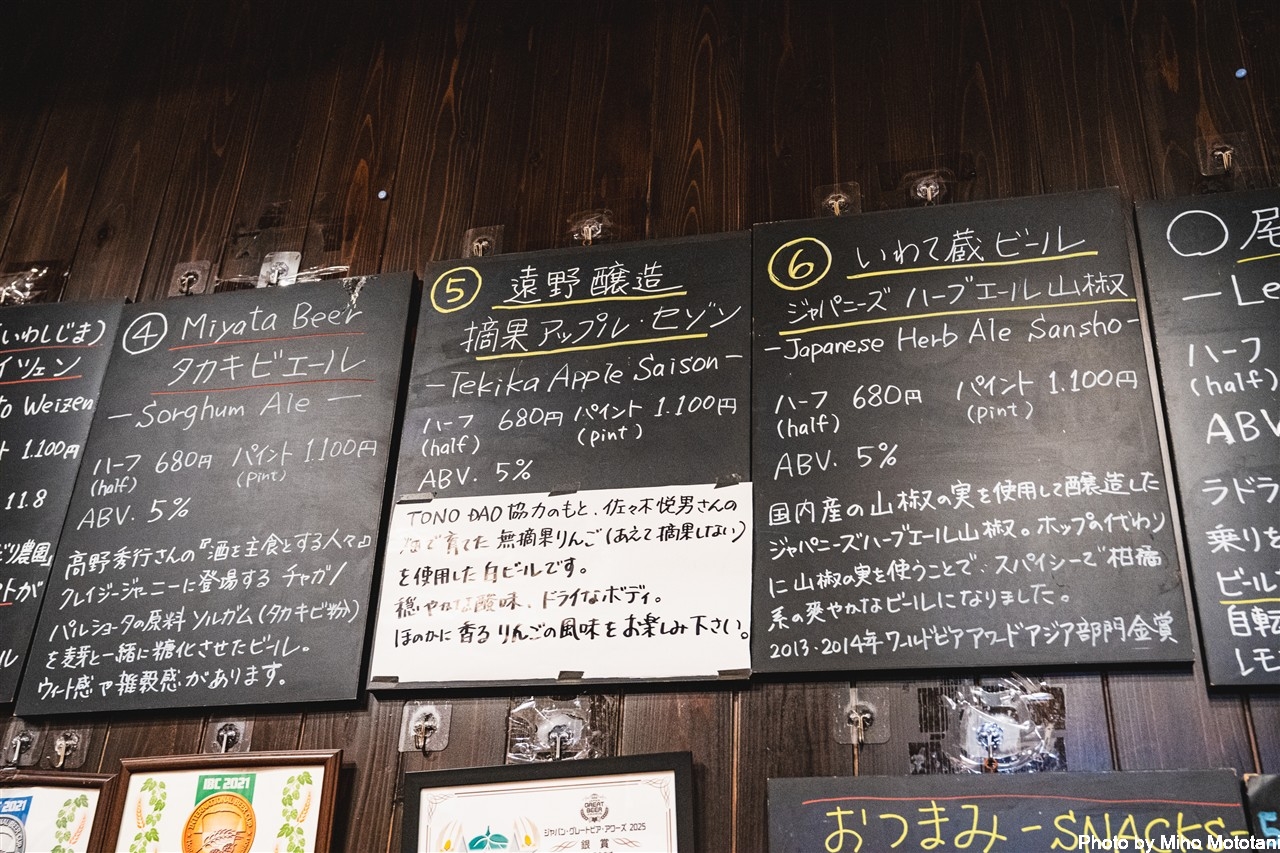 (いわしじま)
イツェン
to Weizen
ト 1.100円
11.8
どり農園」
トが
ル
④ Miyata Beer
タカキビエール
— Sorghum Ale —
ハーフ 680円 パイント 1.100円
(half) (pint)
ABV. 5%
高野秀行さんの『酒を主食とする人々』
クレイジージャーニーに登場する チャガ/
パルショータの原料 ソルガム(タカキビ粉)
を麦芽と一緒に糖化させたビール。
ウィート感や雑穀感があります。
⑤ 遠野醸造
摘果アップル・セゾン
-Tekika Apple Saison-
ハーフ 680円 パイント 1.100円
(half) (pint)
ABV. 5%
TONO DAO 協力のもと、佐々木悦男さんの
で育てた 無摘果りんご(あえて摘果しない)
を使用した白ビールです。
穏やかな酸味、ドライなボディ。
ほのかに香るりんごの風味をお楽しみ下さい。
⑥ いわて蔵ビール
ジャパニーズ ハーブエール山椒
-Japanese Herb Ale Sansho-
ハーフ 680円 パイント 1.100円
(half) (pint)
ABV. 5%
国内産の山椒の実を使用して醸造した
ジャパニーズハーブエール山椒。ホップの代わり
に山椒の実を使うことで、スパイシーで柑橘
系の爽やかなビールになりました。
2013・2014年ワールドビアアワードアジア部門金賞
○ 尾
— Le
ハーフ
(half)
ABV
ラドラ
乗りを
ビール
自転
レモ
2021
IBC 2021
GREAT BEER
ジャパン・グレートビア・アワーズ 2025
銀賞
おつまみ -SNACKS-
Photo by Miho Mototani